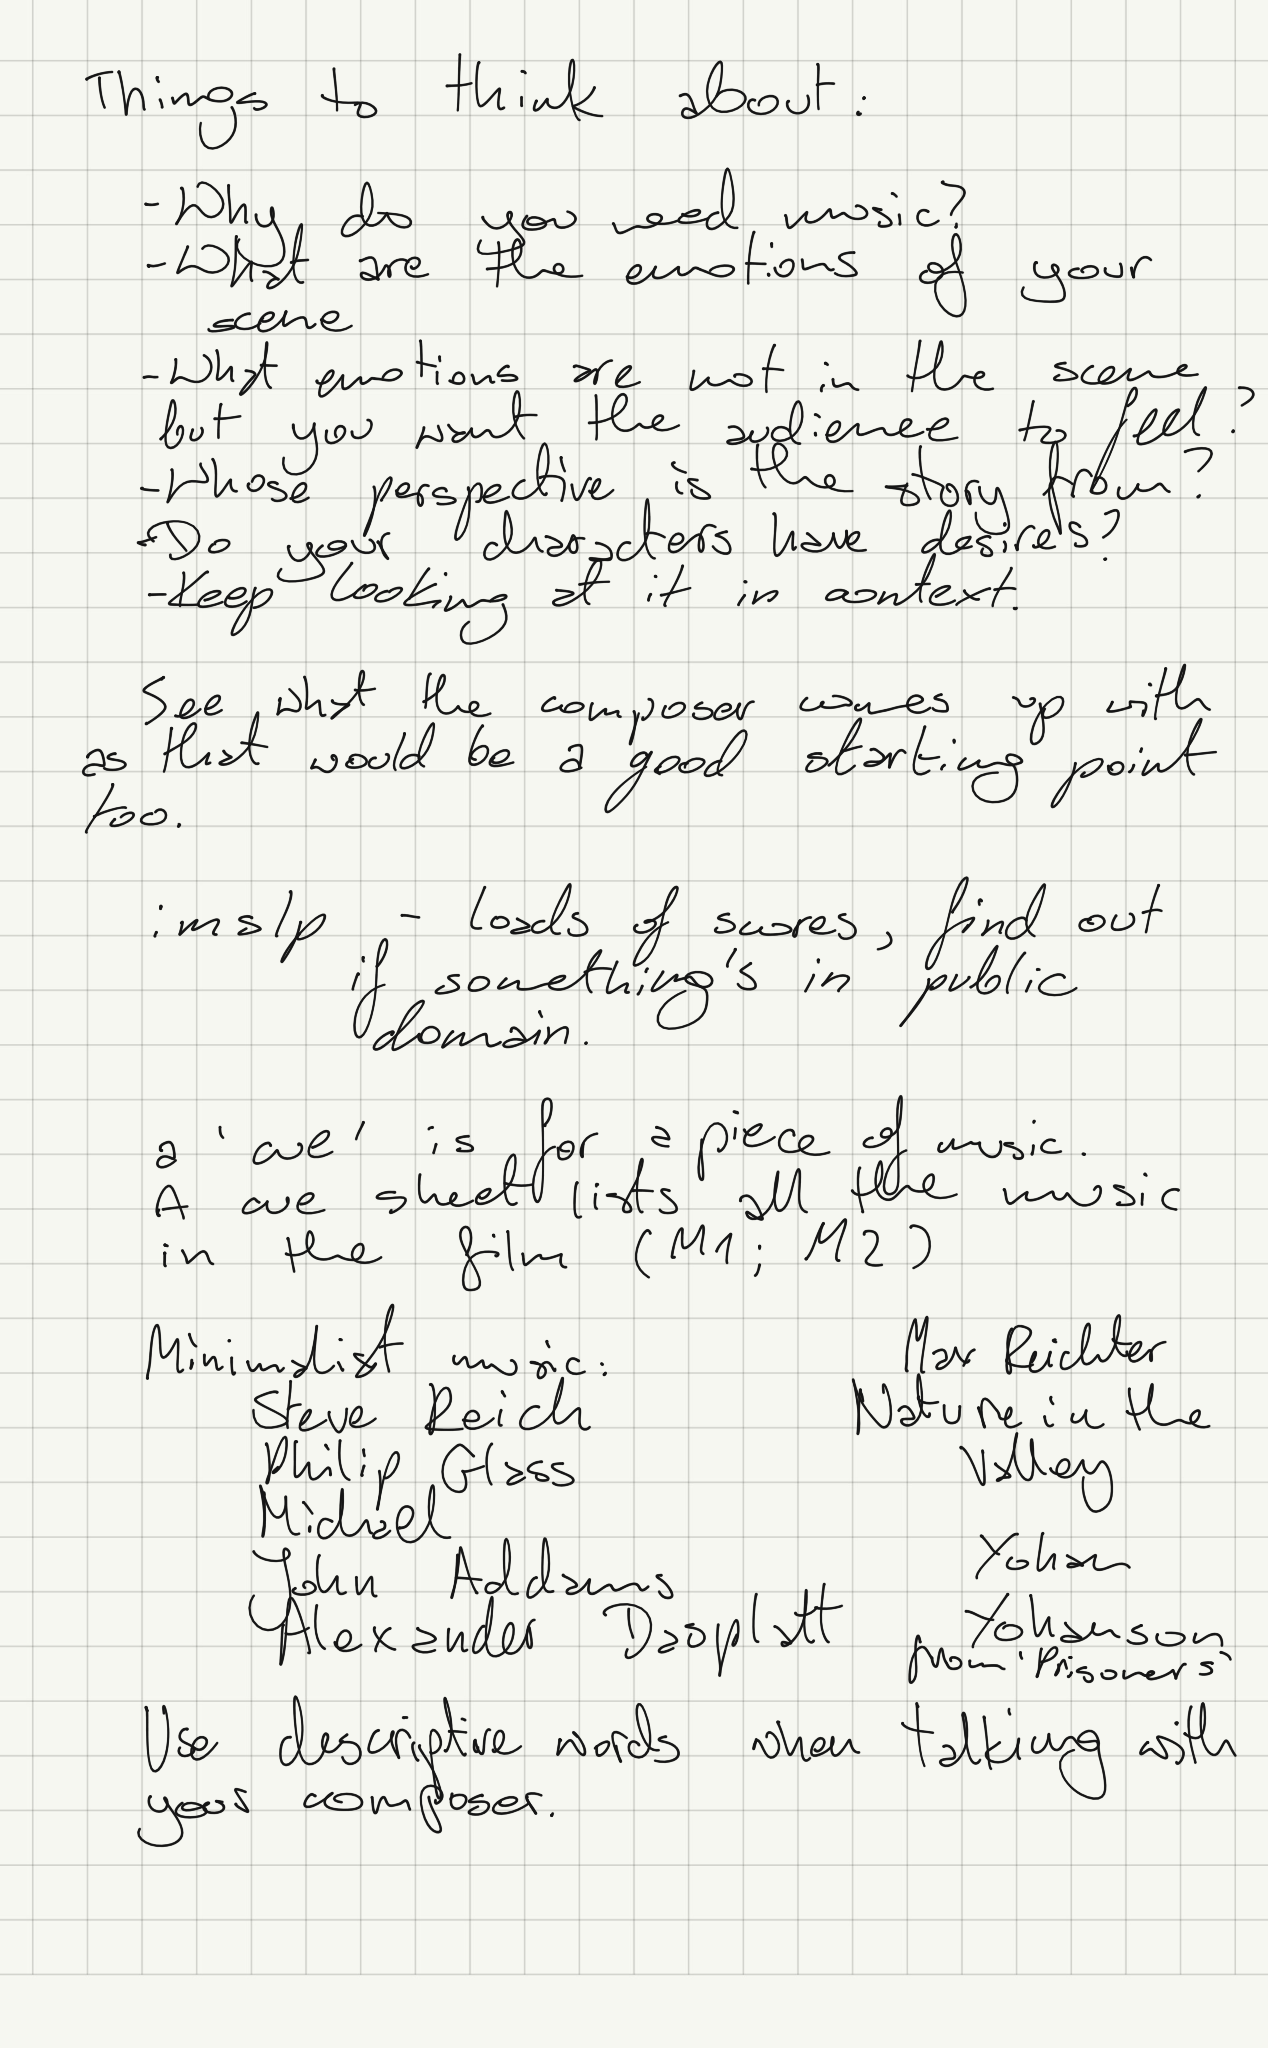 Things to think about:
- Why do you need music?
- What are the emotions of your
scene
- What emotions are not in the scene
but you want the audience to feel?
- Whose perspective is the story from?
- Do your characters have desires?
- Keep looking at it in context.
See what the composer comes up with
as that would be a good starting point
too.
imslp - loads of scores, find out
if something's in public
domain.
a 'cue' is for a piece of music.
A cue sheet lists all the music
in the film (M1; M2)
Minimalist music:
Steve Reich
Philip Glass
Michael
John Addams
Alexander Dsoplatt
Max Reichter
Nature in the
Valley
Yohan
Yohanson
from 'Prisoners'
Use descriptive words when talking with
your composer.